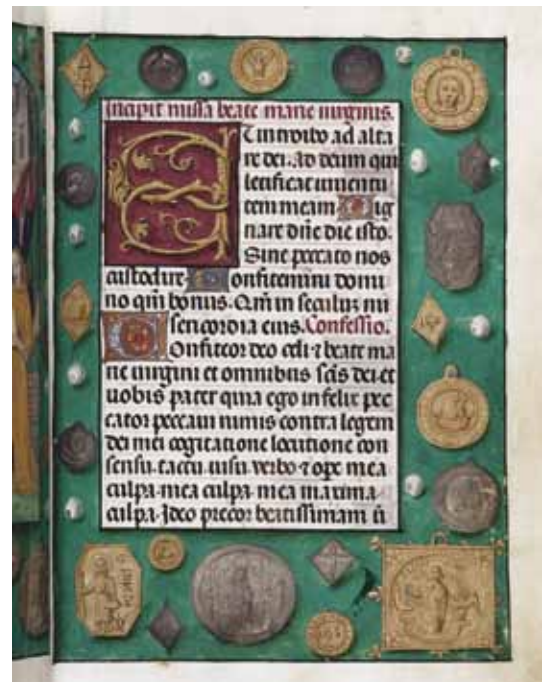 Incipit missa beate marie virginis.
Et introibo ad alta
re dei. ad deum qui
letificat iuventu
tem meam Dig
nare dñe die isto.
Sine peccato nos
custodire Confitemini domi
no qm̃ bonus. Qm̃ in seculuz mi
sericordia eius. Confessio.
Confiteor deo celi ⁊ beate ma
rie virgini et omnibus scĩs dei et
vobis pater quia ego infelix pec
cator peccavi nimis contra legem
dei mei cogitatione locutione con
sensu. tactu. visu. verbo ⁊ ope mea
culpa. mea culpa. mea maxima
culpa. Ideo precor beatissimam